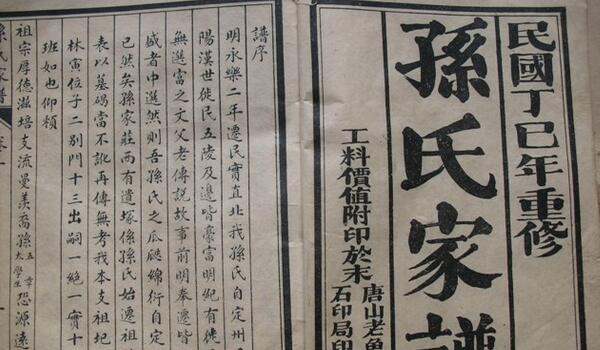 民國丁巳年重修
孫氏家譜
工料價值附印於末
唐山老魚
石印局印
譜序
明永樂二年遷民實直北我孫氏自定州
陽漢世徙民五陵及邊皆豪富明紀有徙
無選富之文父老傳說故事前明奉遷皆
者中選然則吾孫氏之瓜瓞綿衍自定
已然矣孫家莊西有遺塚係孫氏始遷祖
表以墓碣當不訛再傳無考我本支祖圮
林寅位子二別門十三出嗣一絕一實十
班如也仰賴
祖宗厚德滋培支流曼羨裔孫五章太學生恐源遠
孫氏家譜